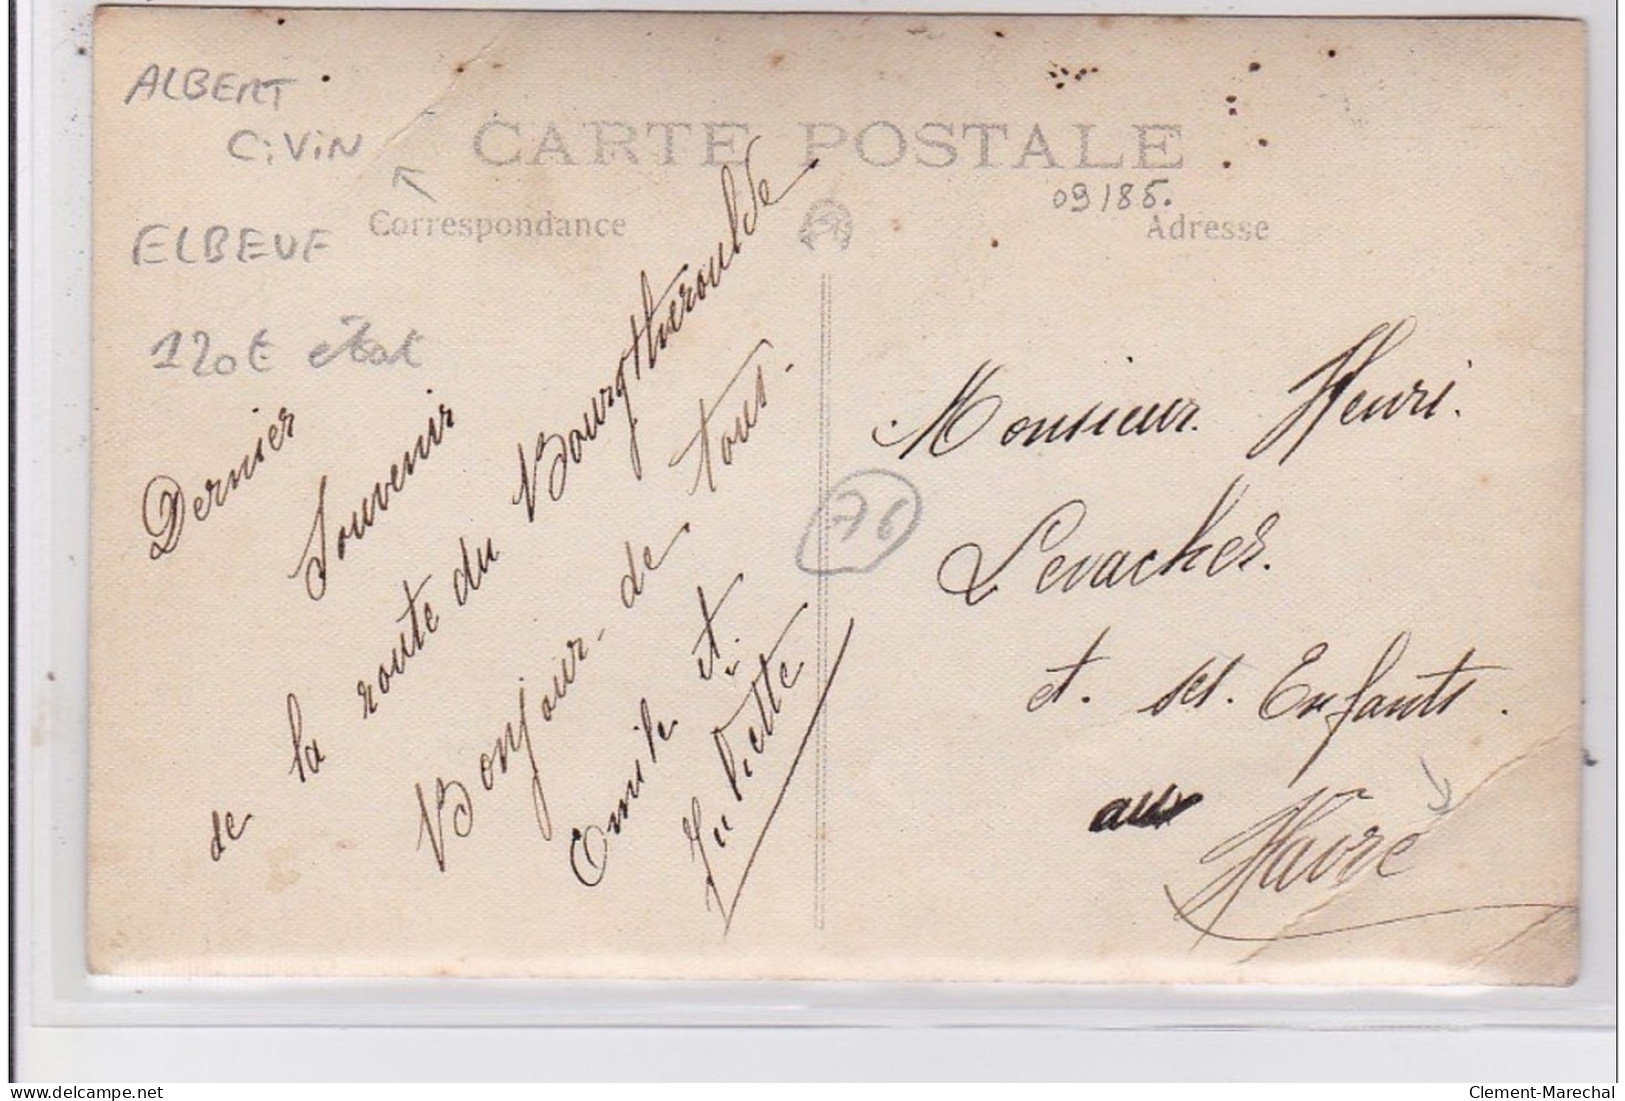 ALBERT
CiViN
CARTE POSTALE
09/85.
Correspondance
Adresse
ELBEUF
120€ état
Dernier
Souvenir
de la route du Bourgtheroulde
Bonjour - de tous.
Emile et
Juliette
76
Monsieur. Henri.
Levacher.
et. ses. Enfants.
au
Havre
delcampe.net
Clement-Marechal